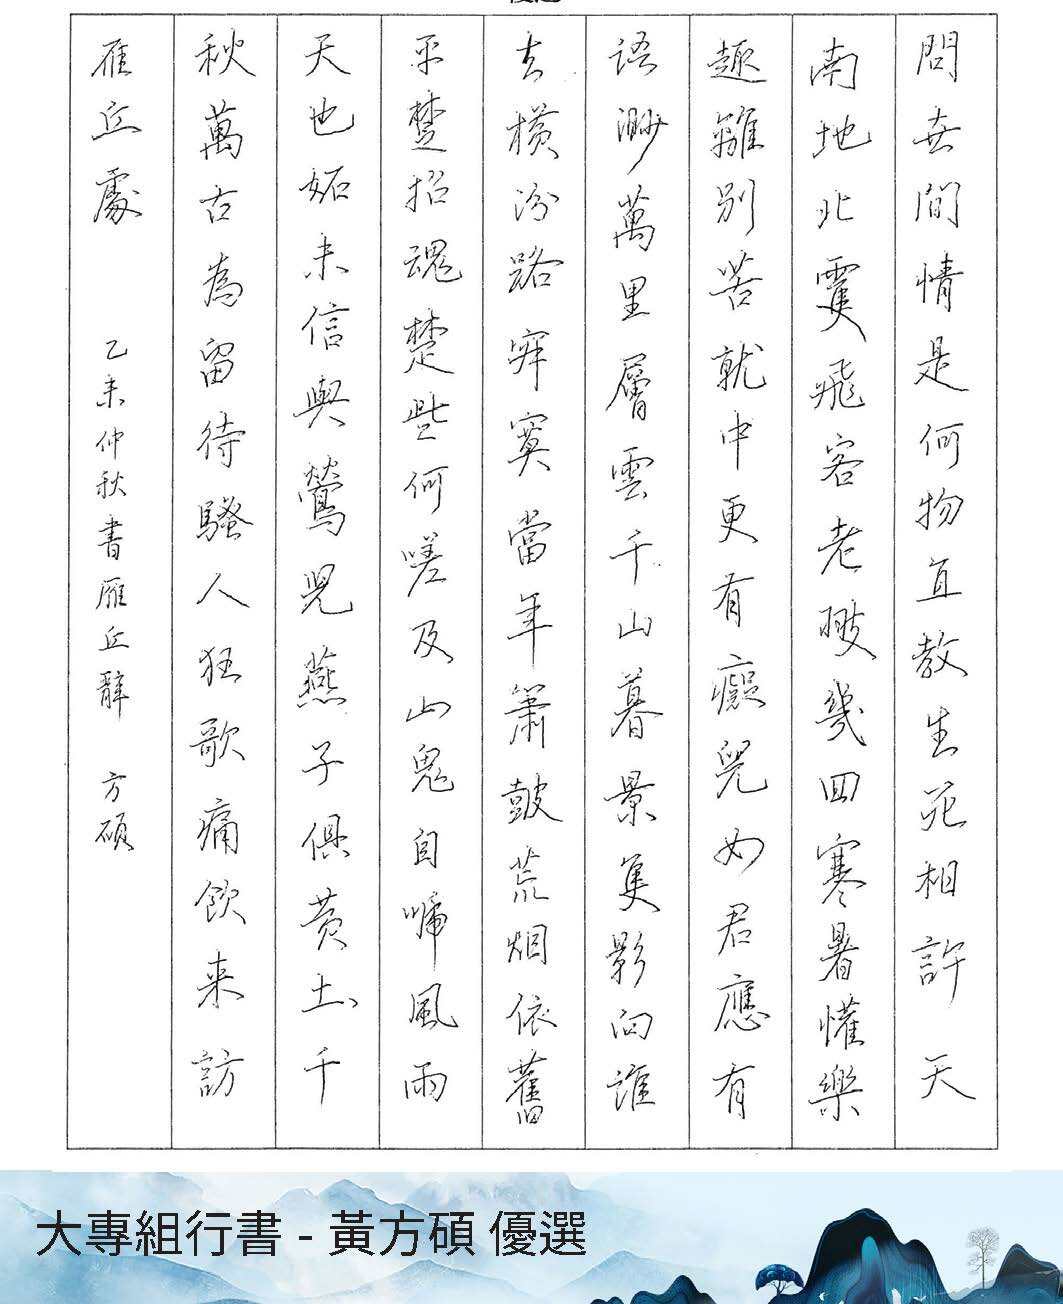 問世間情是何物直教生死相許天
南地北雙飛客老翅幾回寒暑懽樂
趣離別苦就中更有癡兒女君應有
語渺萬里層雲千山暮景隻影向誰
去橫汾路寂寞當年簫鼓荒烟依舊
平楚招魂楚些何嗟及山鬼自啼風雨
天也妬未信與鶯兒燕子俱黃土千
秋萬古為留待騷人狂歌痛飲来訪
雁丘處 乙未仲秋書雁丘辭 方碩
大專組行書 - 黃方碩 優選